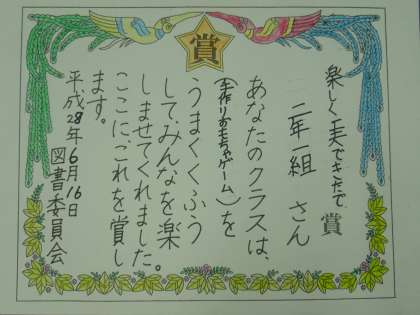 賞
楽しく工夫できたで賞
二年一組 さん
あなたのクラスは、
(手作りおもちゃゲーム)を
うまくくふう
して、みんなを楽
しませてくれました。
ここに、これを賞し
ます。
平成28年6月16日
図書委員会